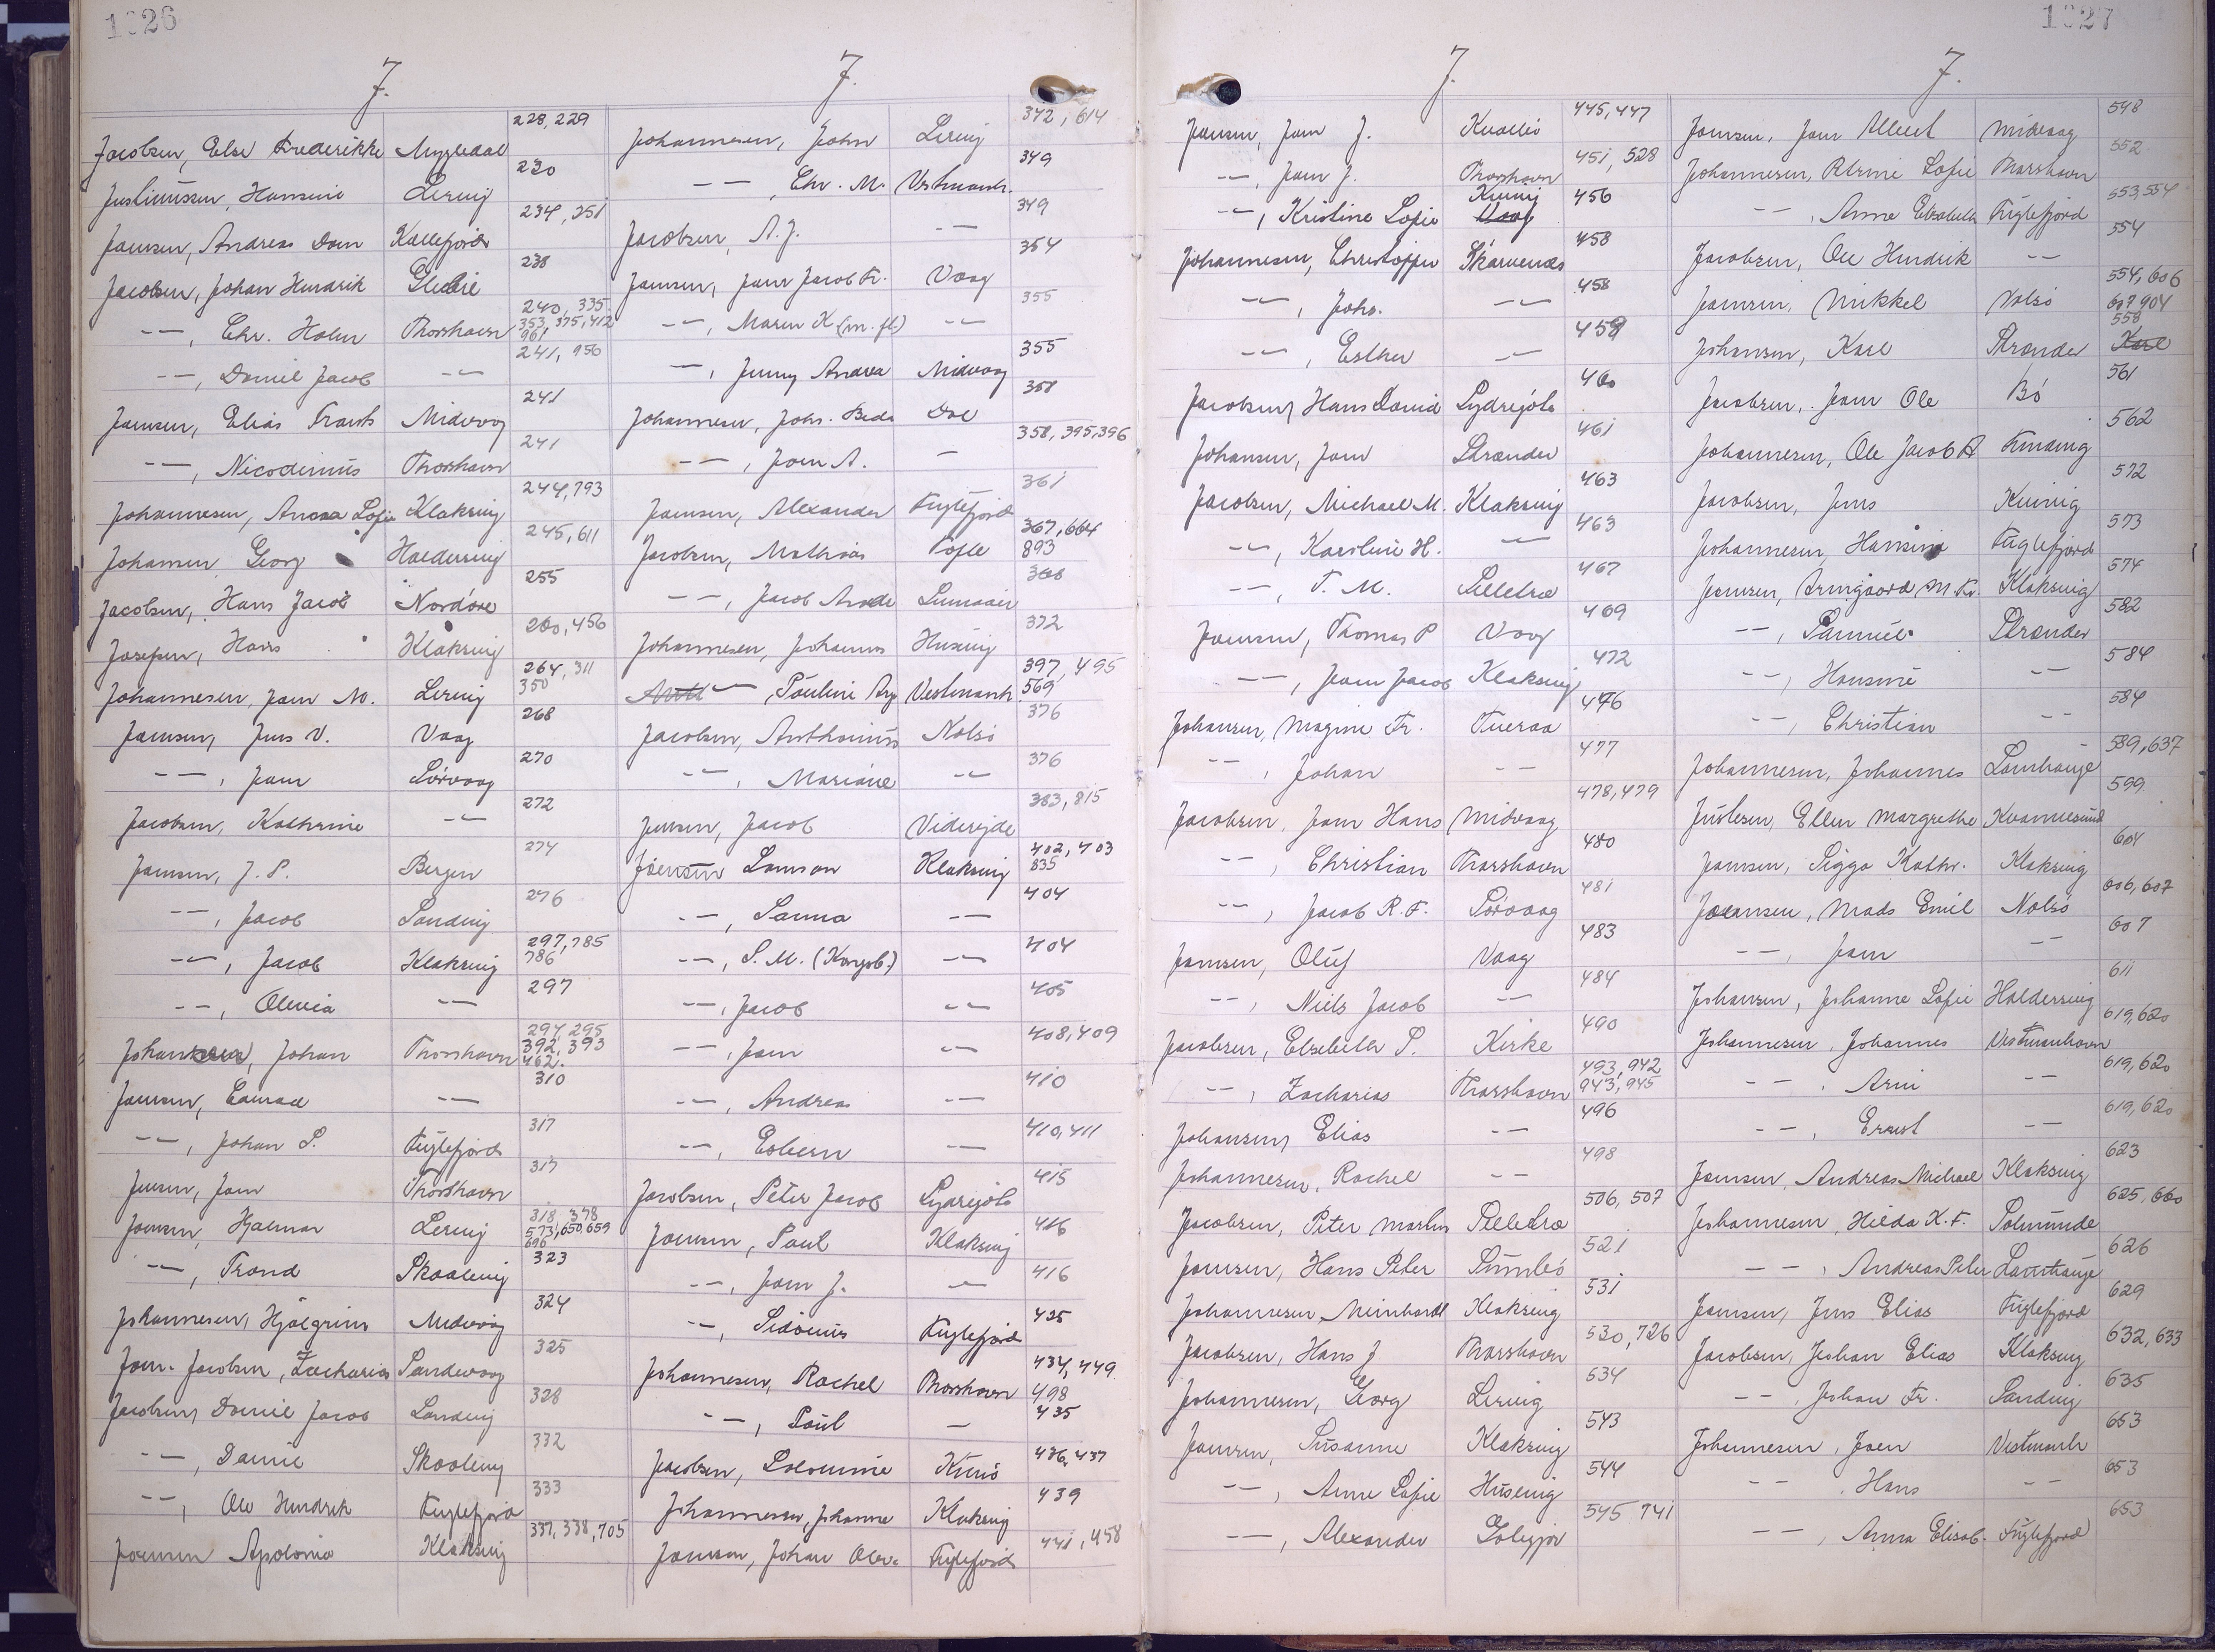 1026
J.
Jacobsen, Else Frederikke Mygledal 228, 229
Justinussen, Hansine Lervig 230
Joensen, Andreas Dam Kollefjord 234, 251
Jacobsen, Johan Hendrik Glibre 238
-"-, Chr. Holm Thorshavn 240, 335, 353, 375, 412, 961
-"-, Daniel Jacob -"- 241, 956
Joensen, Elias Frants Midvaag 241
-"-, Nicodemus Thorshavn 241
Johannesen, Anna Sofie Klaksvig 244, 793
Johansen Georg Haldersvig 245, 611
Jacobsen, Hans Jacob Nordøre 255
Josefsen, Hans Klaksvig 260, 456
Johannesen, Joen M. Lervig 264, 311, 350
Joensen, Jens V. Vaag 268
-"-, Joen Sørvaag 270
Jacobsen, Kathrine -"- 272
Joensen, J. P. Bergen 274
-"-, Jacob Sandvig 276
-"-, Jacob Klaksvig 297, 785, 786
-"-, Olevia -"- 297
Johansen, Johan Thorshavn 294, 295, 392, 393, 462.
Joensen, Conrad -"- 310
-"-, Johan P. Fuglefjord 317
Jensen, Joen Thorshavn 317
Joensen, Hjalmar Lervig 318, 378, 573, 650, 659, 696
-"-, Trond Skaalevig 323
Johannesen, Hjalgrim Midvaag 324
Joen-Jacobsen, Zacharias Sandevaag 325
Jacobsen, Daniel Jacob Sandvig 328
-"-, Daniel Skaalevig 332
-"-, Ole Hendrik Fuglefjord 333
Joensen Apolonia Klaksvig 337, 338, 705
J.
Johannesen, John Lervig 342, 614
-"-, Chr. M. Vestmanh. 349
Jacobsen, A. J. -"- 349
Joensen, Joen Jacob Fr. Vaag 354
-"-, Maren K (m. fl.) -"- 355
-"-, Jenny Andrea Midvaag 355
Johannesen, Johs. Beda Dal 358
-"-, Joen A. - 358, 395, 396
Joensen, Alexander Fuglefjord 361
Jacobsen, Mathias Tofte 367, 664, 893
-"-, Jacob Sumvaai 368
Johannesen, Johannes Husevig 372
-"-, Pauline Vestmanh. 397, 495, 569
Jacobsen, Anthonius Nolsø 376
-"-, Mariane -"- 376
Jensen, Jacob Viderejde 383, 815
Joensen Samson Klaksvig 402, 403, 835
-"-, Sanna -"- 404
-"-, S. M. (Kongsb.) -"- 404
-"-, Jacob -"- 405
-"-, Joen -"- 408, 409
-"-, Andreas -"- 410
-"-, Esbern -"- 410, 411
Jacobsen, Peter Jacob Lydrejöla 415
Joensen, Poul Klaksvig 416
-"-, Joen J. -"- 416
-"-, Sidonius Fuglefjord 425
Johannesen, Rachel Thorshavn 434, 449, 498
-"-, Poul - 435
Jacobsen, Solomine Kunø 436, 437
Johannesen, Johanne Klaksvig 439
Joensen, Johan Fuglefjord 441, 458
1027
J.
Joensen, Joen J. Kvalbø 445, 447
-"-, Joen J. Thorshavn 451, 528
-"-, Kristine Sofie Kvivig 456
Johannesen, Christoffer Skarvenæs 458
-"-, Johs. -"- 458
-"-, Esther -"- 459
Jacobsen, Hans David Lydrejöla 460
Johansen, Joen Strænder 461
Jacobsen, Michael M. Klaksvig 463
-"-, Karoline H. -"- 463
-"-, T. M. Selletræ 467
Joensen, Thomas P Vaag 469
-"-, Joen Jacob Klaksvig 472
Johansen, Magine Fr. Tueraa 476
-"-, Johan -"- 477
Jacobsen, Joen Hans Midvaag 478, 479
-"-, Christian Thorshavn 480
-"-, Jacob R. F. Sørvaag 481
Joensen, Oluf Vaag 483
-"-, Niels Jacob -"- 484
Jacobsen, Elsebeth S. Kirke 490
-"-, Zacharias Thorshavn 493, 942, 943, 945
Johansen, Elias -"- 496
Johannesen, Rachel -"- 498
Jacobsen, Peter Martin Selletræ 506, 507
Joensen, Hans Peter Sumbø 521
Johannesen, Meinhardt Klaksvig 531
Jacobsen, Hans J Thorshavn 530, 726
Johannesen, Georg Lervig 534
Joensen, Susanne Klaksvig 543
-"-, Anne Sofie Husevig 544
-"-, Alexander 545 741
J.
Joensen, Joen Albert Midvaag 548
Johannesen, Sofie Thorshavn 552
-"-, Anna Elsabeth Fuglefjord 553, 554
Jacobsen, Ole Hendrik -"- 554
Joensen, Mikkel Nolsø 554, 606, 607, 904
Johansen, Karl Strænder 558 Karl
Jacobsen, Joen Ole Bø 561
Johannesen, Ole Jacob A Funding 562
Jacobsen, Jens Kvivig 572
Johannesen, Hansina Fuglefjord 573
Joensen, Armgaard M. Kr. Klaksvig 574
-"-, Samuel Strænder 582
-"-, Hansine -"- 584
-"-, Christian -"- 584
Johannesen, Johannes Lamhauge 589, 637
Justesen, Ellen Margrethe Kvannesund 599
Joensen, Sigga Kathr. Klaksvig 604
Joensen, Mads Emil Nolsø 606, 607
-"-, Joen -"- 607
Johansen, Johanne Sofie Haldersvig 611
Johannesen, Johannes Vestmanhavn 619, 620
-"-, Arni -"- 619, 620
-"-, Ernest -"- 619, 620
Joensen, Andreas Michael Klaksvig 623
Johannesen, Hilda K. F. Salmunde 625, 660
-"-, Andreas Peter Lamhauge 626
Joensen, Jens Elias Fuglefjord 629
Jacobsen, Johan Elias Klaksvig 632, 633
-"-, Johan Fr. Sandvig 635
Johannesen, Joen Vestmanh 653
-"-, Hans -"- 653
-"-, Anna Elisab. Fuglefjord 653